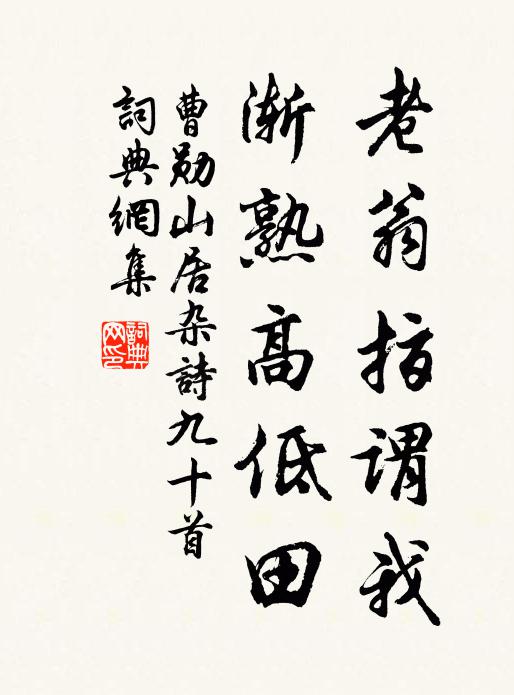 老翁指谓我
渐熟高低田
曹勋山居杂詩九十首
詞典網集
詞典网印